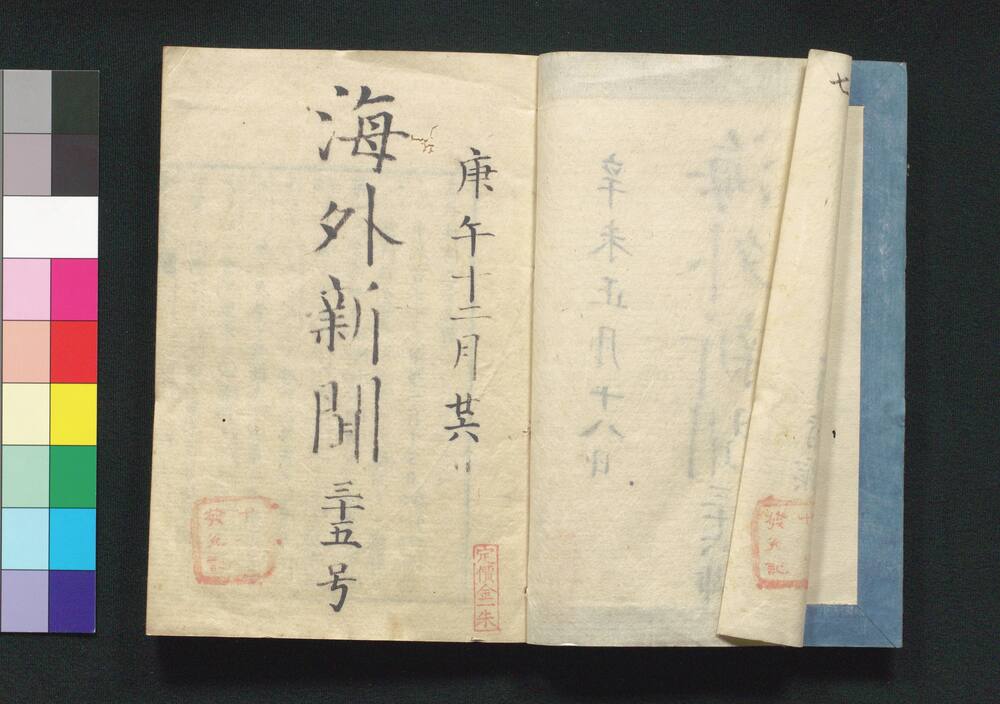 七
辛未正月十八日
庚午十二月廿六日
海外新聞三十五号
定價金一朱